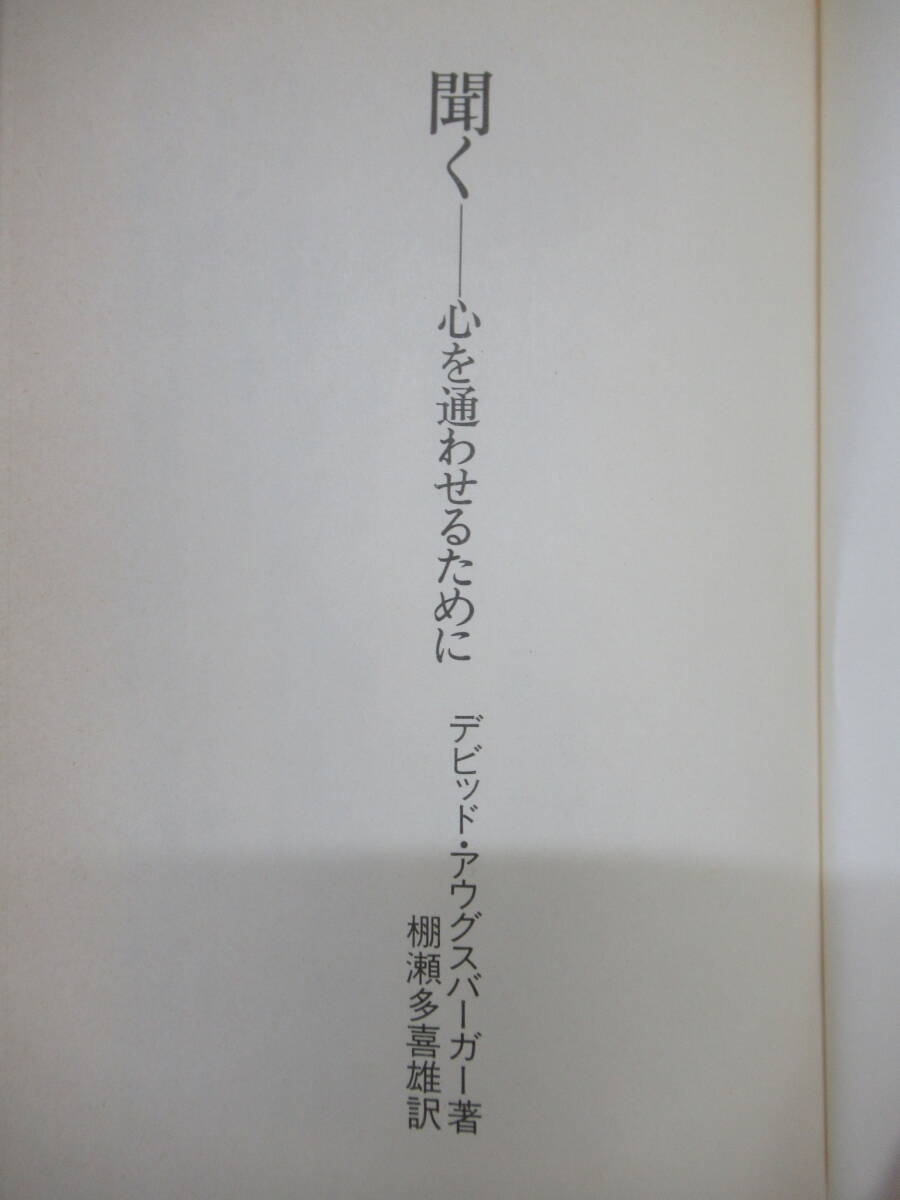 聞く――心を通わせるために
デビッド・アウグスバーガー著
棚瀬多喜雄訳